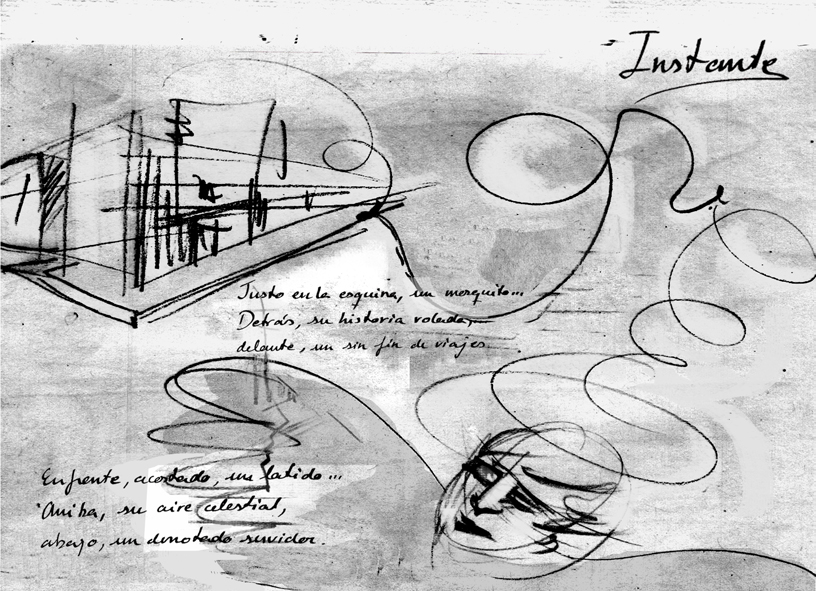 Instante
Justo en la esquina, un mosquito...
Detrás, su historia volada,
delante, un sin fin de viajes.
Enfrente, acostado, un latido...
Arriba, su aire celestial,
abajo, un denotado servidor.